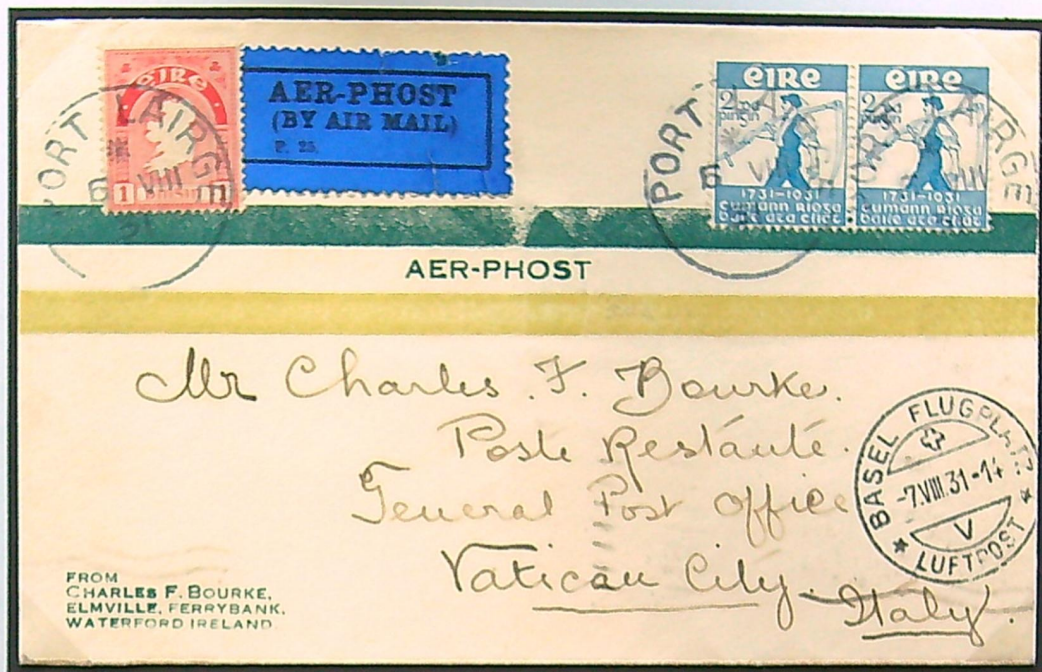 éire
1 pinġin
AER-PHOST
(BY AIR MAIL)
P. 25.
PORT LAIRGE
6 VIII
31
éire
2 pinġin
1731-1931
cumann ríoġa
baile áta cliat
éire
2
1731-1931
cumann ríoġa
baile áta cliat
PORT LAIRGE
6 VIII
AER-PHOST
Mr Charles. F. Bourke.
Poste Restánté.
General Post Office
Vatican City.
Italy.
BASEL FLUGPLATZ
-7.VIII.31-14
V
* LUFTPOST *
FROM
CHARLES F. BOURKE,
ELMVILLE, FERRYBANK,
WATERFORD IRELAND.